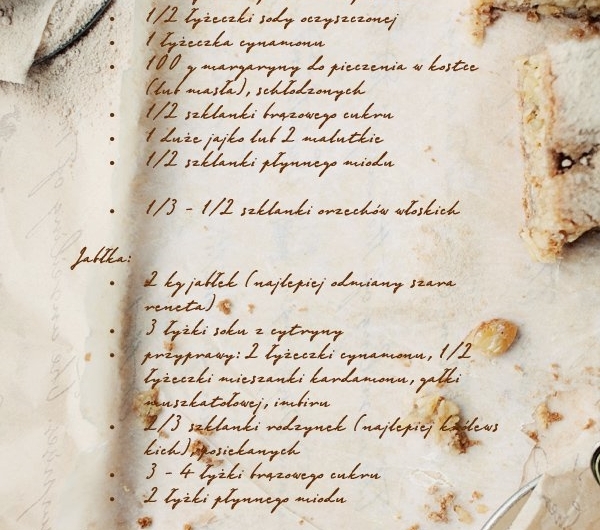 1/2 łyżeczki sody oczyszczonej
1 łyżeczka cynamonu
100 g margaryny do pieczenia w kostce
(lub masła), schłodzonych
1/2 szklanki brązowego cukru
1 duże jajko lub 2 malutkie
1/2 szklanki płynnego miodu
1/3 - 1/2 szklanki orzechów włoskich
Jabłka:
2 kg jabłek (najlepiej odmiany szara
reneta)
3 łyżki soku z cytryny
przyprawy: 2 łyżeczki cynamonu, 1/2
łyżeczki mieszanki kardamonu, gałki
muszkatołowej, imbiru
2/3 szklanki rodzynek (najlepiej królews
kich), posiekanych
3 - 4 łyżki brązowego cukru
2 łyżki płynnego miodu